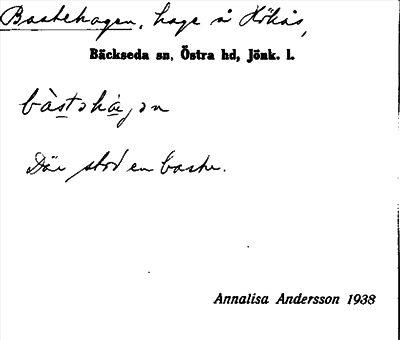 Bastehagen, hage å Hökås,
Bäckseda sn, Östra hd, Jönk. l.
bàstəhàgən
Där stod en baste.
Annalisa Andersson 1938